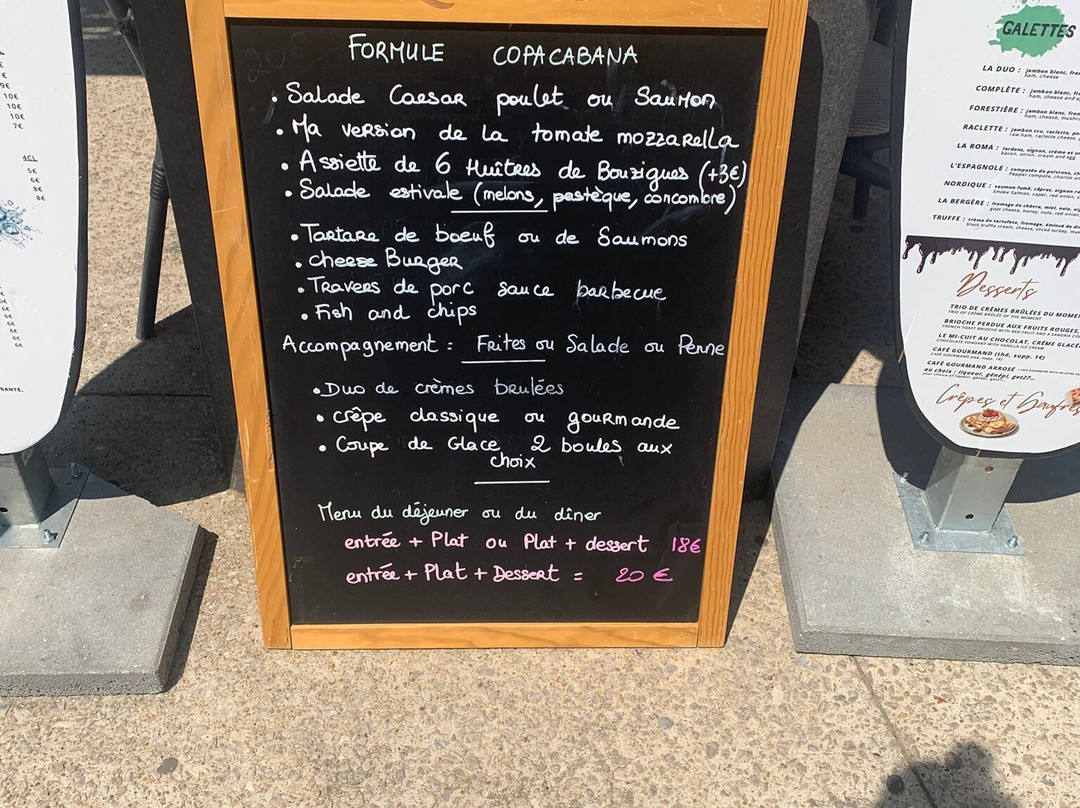 FORMULE COPACABANA
• Salade Caesar poulet ou Saumon
• Ma version de la tomate mozzarella
• Assiette de 6 Huîtres de Bouzigues (+3€)
• Salade estivale (melons, pastèque, concombre)
• Tartare de boeuf ou de Saumons
• cheese Burger
• Travers de porc sauce barbecue
• Fish and chips
Accompagnement : Frites ou Salade ou Penne
• Duo de crèmes brulées
• crêpe classique ou gourmande
• Coupe de Glace 2 boules aux
choix
Menu du déjeuner ou du dîner
entrée + Plat ou Plat + dessert 18€
entrée + Plat + Dessert = 20 €
€
€
9€
10€
10€
7€
4CL
5€
6€
8€
8€
6€
6€
6€
6€
8€
SANTE.
GALETTES
LA DUO : jambon blanc,
ham, cheese
COMPLÈTE : jambon blanc,
ham, cheese and
FORESTIÈRE : jambon blanc,
ham, cheese,
RACLETTE : jambon cru, raclette,
raw ham, raclette cheese,
LA ROMA : lardons, oignon, crème et
bacon, onion, cream and egg
L'ESPAGNOLE : compotée de poivrons,
Pepper compote,
NORDIQUE : saumon fumé, câpres, oignon
Smoke Salmon, caper, red onion,
LA BERGÈRE : fromage de chèvre, miel, noix,
goat cheese, honey, nuts, red onion,
TRUFFE : crème de tartufata, fromage, émincé de
black truffle cream, cheese, sliced turkey,
Desserts
TRIO DE CRÈMES BRÛLÉES DU
TRIO OF CRÈME BRÛLÉE OF THE MOMENT
BRIOCHE PERDUE AUX FRUITS ROUGES,
FRENCH TOAST BRIOCHE WITH RED FRUIT AND A
LE MI-CUIT AU CHOCOLAT, CRÈME
CHOCOLATE FONDANT WITH VANILLA ICE CREAM
CAFÉ GOURMAND (thé, supp. 1€)
CAFÉ GOURMAND (tea, supp. 1€)
CAFÉ GOURMAND ARROSÉ
au choix : liqueur, génépi, get27...
Crêpes et Gaufres